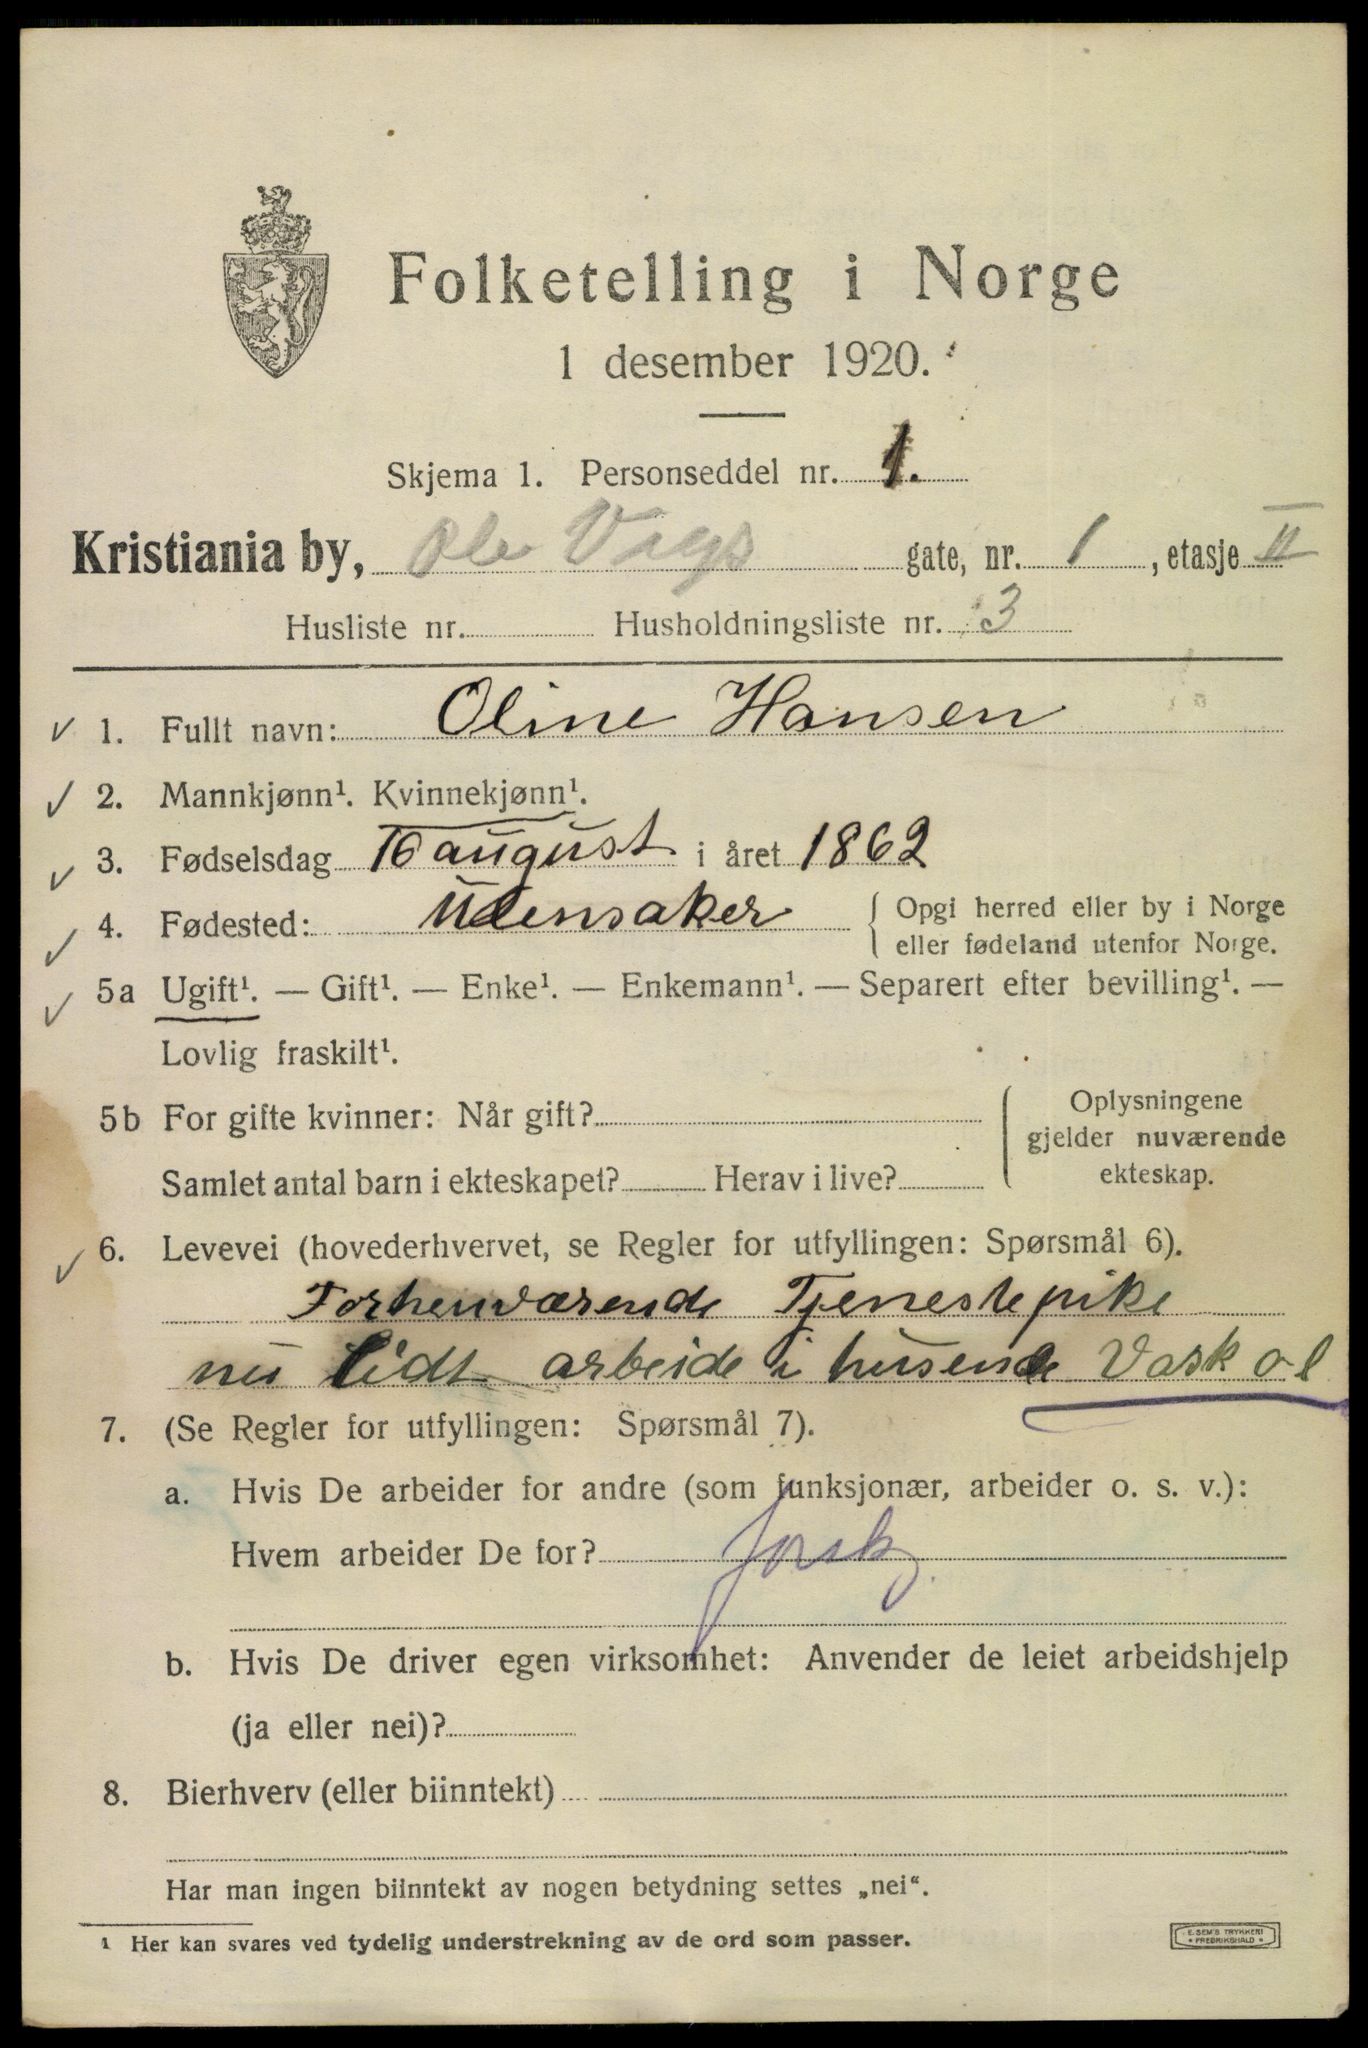 Folketelling i Norge
1 desember 1920.
Skjema 1. Personseddel nr. 1.
Kristiania by, Ole Vigs gate, nr. 1, etasje II
Husliste nr. Husholdningsliste nr. 3
1. Fullt navn: Oline Hansen
2. Mannkjønn¹. Kvinnekjønn¹.
3. Fødselsdag 16 august i året 1862
4. Fødested: Ullensaker { Opgi herred eller by i Norge
eller fødeland utenfor Norge.
5a Ugift¹. — Gift¹. — Enke¹. — Enkemann¹. — Separert efter bevilling¹. —
Lovlig fraskilt¹.
5b For gifte kvinner: Når gift?
Samlet antal barn i ekteskapet? Herav i live?
Oplysningene
gjelder nuværende
ekteskap.
6. Levevei (hovederhvervet, se Regler for utfyllingen: Spørsmål 6).
Forhenværende Tjenestepike
nu lidt arbeide i husene Vask ol
7. (Se Regler for utfyllingen: Spørsmål 7).
a. Hvis De arbeider for andre (som funksjonær, arbeider o. s. v.):
Hvem arbeider De for? forsk.
b. Hvis De driver egen virksomhet: Anvender de leiet arbeidshjelp
(ja eller nei)?
8. Bierhverv (eller biinntekt)
Har man ingen biinntekt av nogen betydning settes „nei“.
¹ Her kan svares ved tydelig understrekning av de ord som passer.
E. SEM'S TRYKKERI
* FREDRIKSHALD *